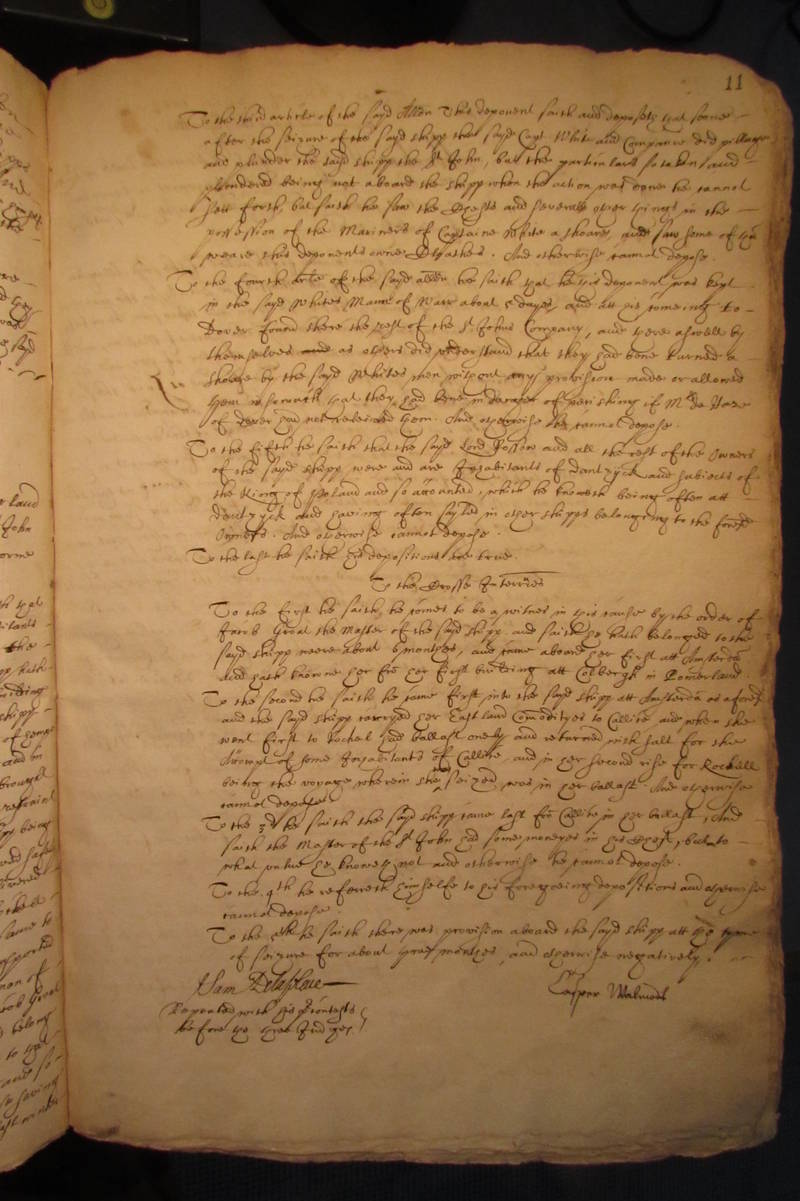 11
To the third article of the sayd Allōn this deponent saith and deposeth that soone
after the seizure of the sayd shipp the sayd Capt White and Companie did pillage
and plunder the sayd shipp the St John, but the particulars so taken and
plundered being not aboard the shipp when the action was done he cannot
sett forth, but saith he saw the Chests and severall other things in the
possession of the Mariners of Captaine White a shoare, and saw some of them
weare this deponents owne Cloathes. And otherwise cannot depose.
To the fourth arťle of the sayd allōn he saith that he this deponent was kept
in the sayd Whites Mann of Warr about 5 dayes, and att his comeing to
Dover found there the rest of the St Johns Company, and there aswell by
themselves as others did understand that they had bene turned a
shoare by the sayd Whites men without any provision made or allowed
them in soemuch that they had bene in danger of perishing if Mr de Haze
of dover had not releived them. And otherwise he cannot depose.
To the fifth he saith that the sayd Lord and all the rest of the Owners
of the sayd shipp were and are Inhabitants of dantzyck and subiects of
the King of Poland and so accounted, which he knoweth being often att
dantzyck and having often sayled in other shipps belonging to the foresd
Owners. And otherwise cannot depose.
To the last he saith his depositions are true.
To the Crosse Interries
To the first he saith he comes to be a witnes in this cause by the order of
Jacob Groat the Master of the sayd shipp and saith he hath belonged to the
sayd shipp neere about 6 monthes, and came aboard her first att Amsterdā
And hath knowne her frō her first building att Colbergh in Pomerland.
To the second he saith he came first into the sayd shipp att Amsterdā as aforesd
and the sayd shipp carryed her East land Comodityes to Callice and when she
went first to Rochel had ballast onely and returned with salt for the
Accompt of some Inhabitants of Callice, and in her second rise for Rochell
being the voyage wherein she was seized was in her ballast And otherwise
cannot depose
To the 3rd he saith the sayd shipp came last frō Callice in her ballast, And
saith the Master of the St John had some moneyes in his Chest, but to
what value he knoweth not and otherwise he cannot depose.
To the 4th he referreth himselfe to his foregoeing depositions and otherwise
cannot depose.
To the 5th he saith there was provision aboard the sayd shipp att the tyme
of seizure for about monthes, and otherwise negatively.
Sam
Casper
Repeated with his
before the three Judges